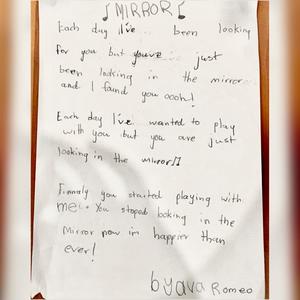 ♪MIRROR♪
Each day i've been looking
for you but youve just
been looking in the mirror
and I found you oooh!
Each day I've wanted to play
with you but you are just
looking in the mirror♫
Finnaly you started playing with
me. You stoped looking in the
Mirror now im happier than
ever!
by ava Romeo